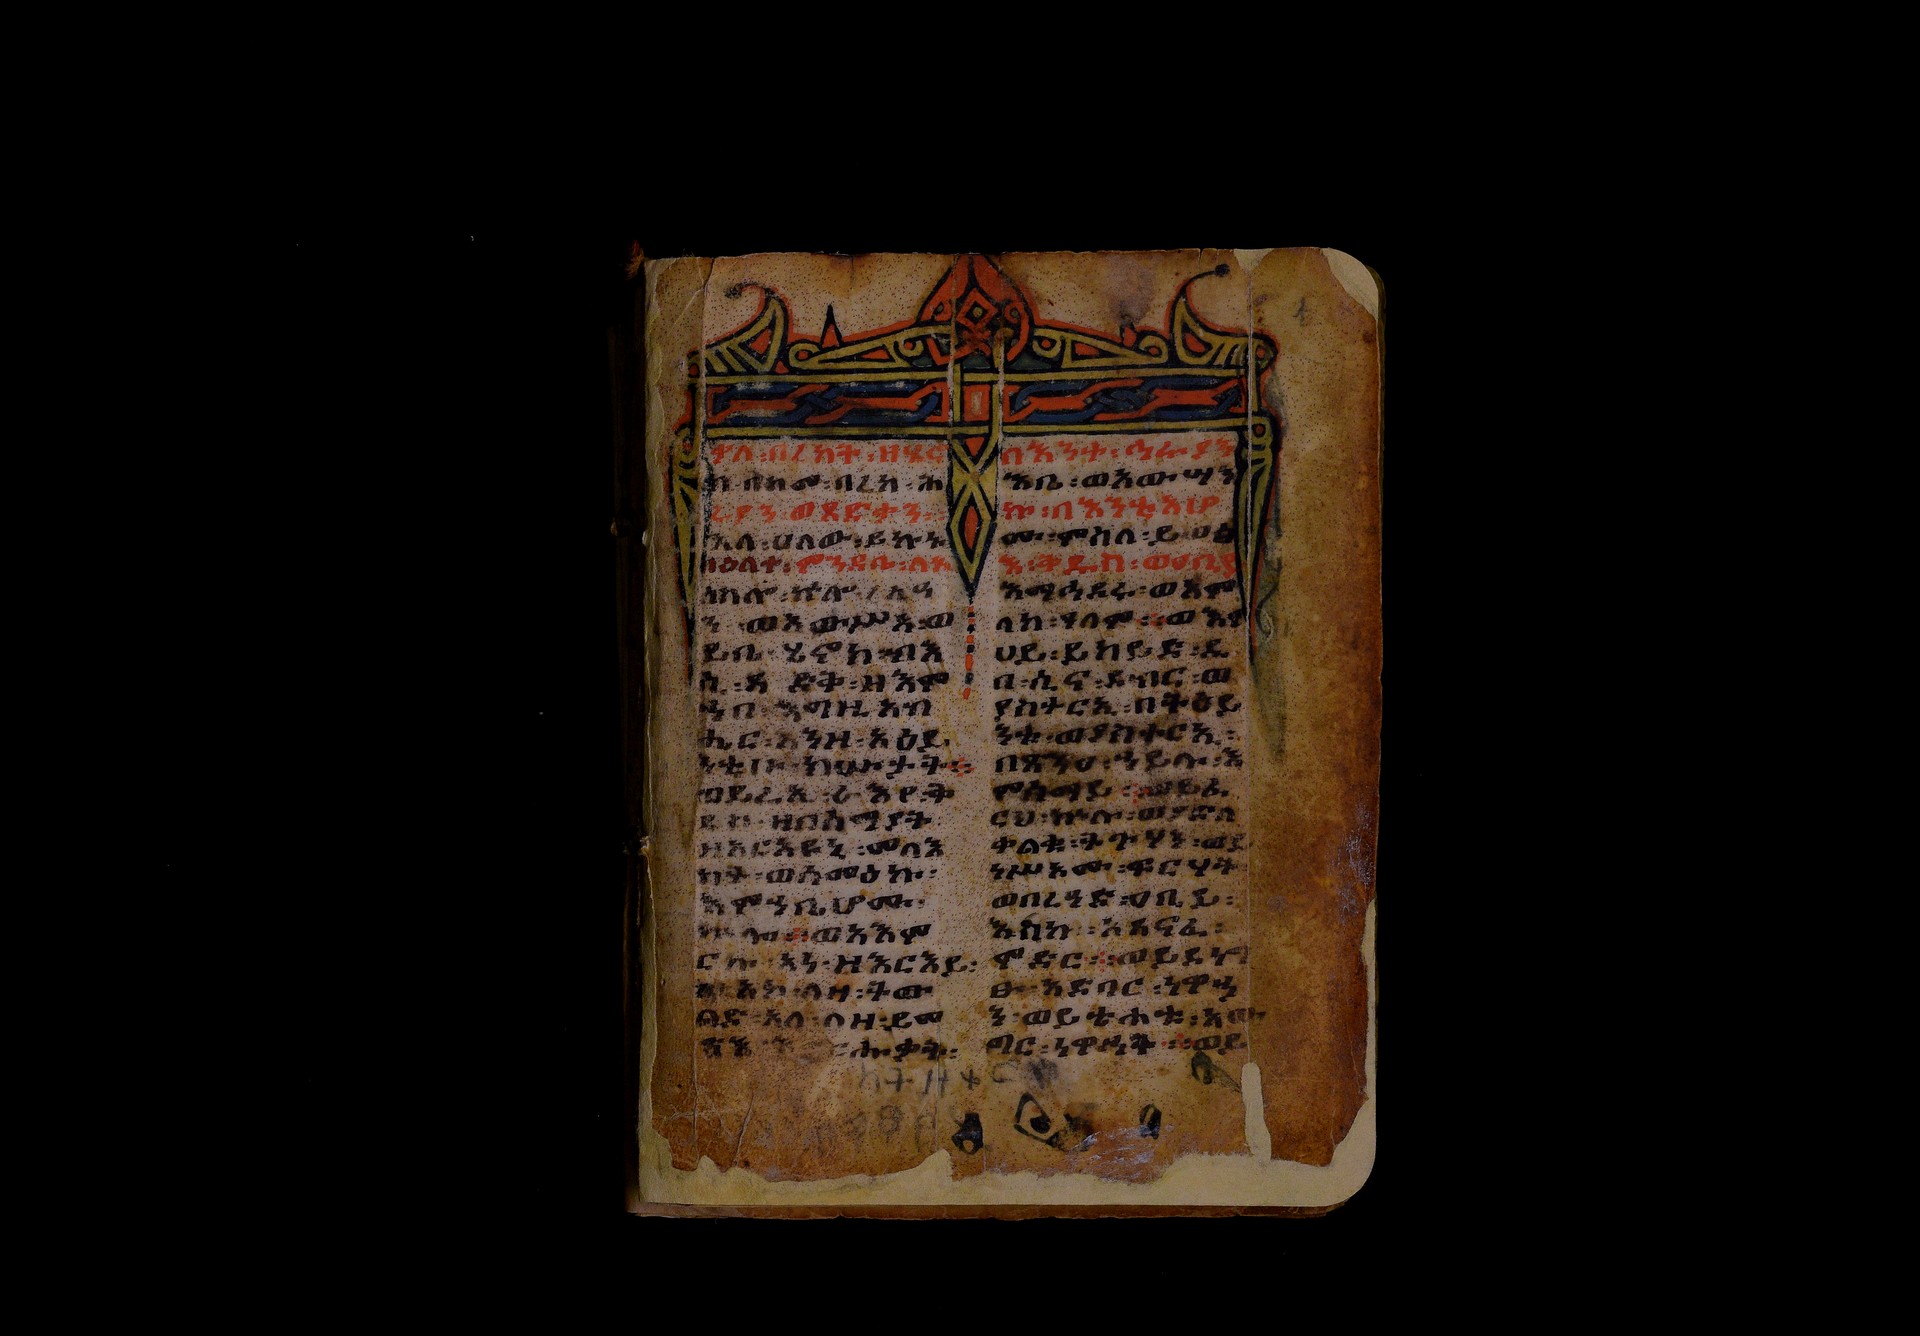 ቃለ፡በረከት፡ዘሄኖ
ክ፡በከመ፡ባረከ፡ኅ
ሩያን፡ወጻድቃን፡
እለ፡ሀለው፡ይኩኑ
በዕለተ፡ምንዳቤ፡ለአ
ሰስሎ፡ኵሎ፡ረሲዓ
ን፡ወአውሥአ፡ወ
ይቤ፡ሄኖክ፡ብእ
ሲ፡ጻድቅ፡ዘእም
ኀበ፡እግዚአብ
ሔር፡እንዘ፡አዕይ
ንቲሁ፡ክሡታት፡
ወይሬኢ፡ራእየ፡ቅ
ዱሰ፡ዘበሰማያት፡
ዘአርአዩኒ፡መላእ
ክት፡ወሰማዕኩ፡
እምኀቤሆሙ፡
ኵሎ፡ወአእመ
ርኩ፡አነ፡ዘእርእይ፡
ወአኮ፡ለዝ፡ትው
ልድ፡አላ፡ለዘ፡ይመ
ርሑቃት፡
በእንተ፡ኅሩያን
እቤ፡ወአውሣእ
ኩ፡በእንቲአሆ
ሙ፡ምስለ፡ይወፅ
እ፡ቅዱስ፡ወዐቢይ
እማኅደሩ፡ወአም
ላከ፡ዓለም፡ወእም
ህየ፡ይከይድ፡ዲ
በ፡ሲና፡ደብር፡ወ
ያስተርኢ፡በትዕይ
ንቱ፡ወያስተርኢ፡
በጽንዐ፡ኃይሉ፡እ
ምሰማይ፡ወይፈ
ርህ፡ኵሉ፡ወያድለ
ቀልቁ፡ትጉሃን፡ወይ
ነሥኦሙ፡ፍርሃት
ወበረዓድ፡ዐቢይ፡
እስከ፡አጽናፈ፡
ምድር፡ወይደነግ
ፁ፡አድባር፡ነዋኃ
ን፡ወይቴሐቱ፡አው
ግር፡ነዋኃት፡ወይ